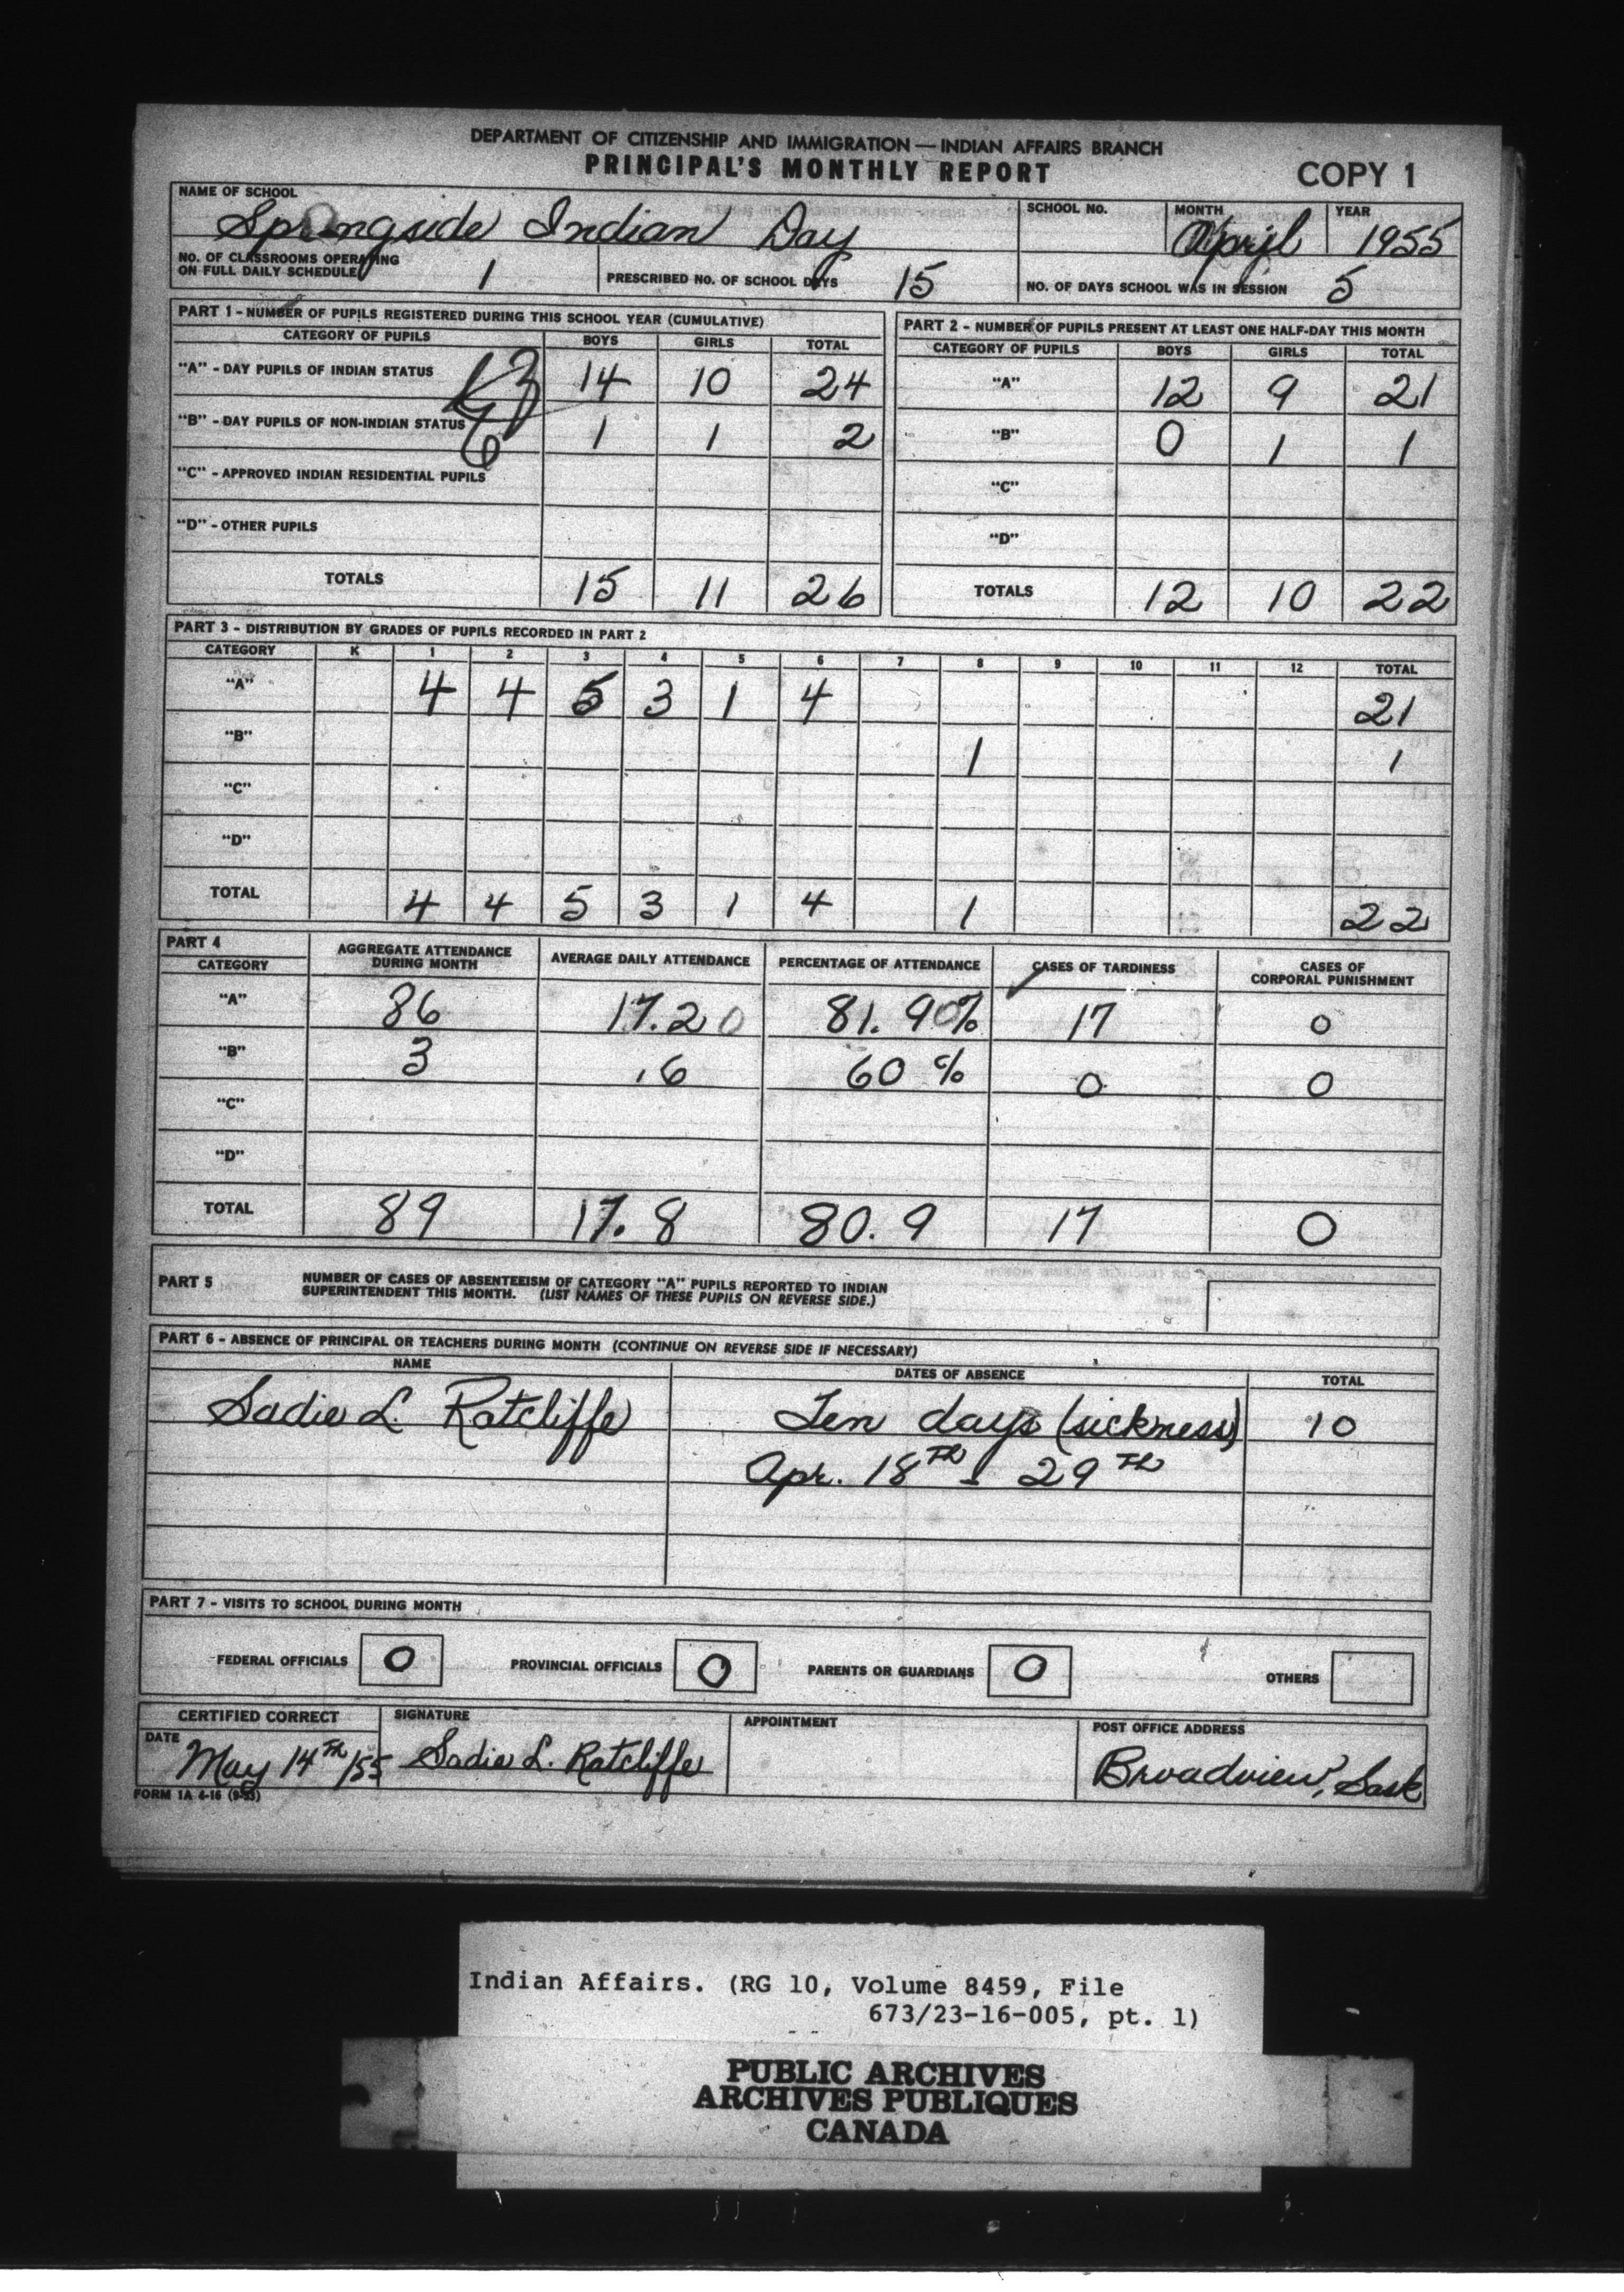 DEPARTMENT OF CITIZENSHIP AND IMMIGRATION — INDIAN AFFAIRS BRANCH
PRINCIPAL'S MONTHLY REPORT COPY 1
NAME OF SCHOOL SCHOOL NO. MONTH YEAR
Springside Indian Day April 1955
NO. OF CLASSROOMS OPERATING
ON FULL DAILY SCHEDULE 1 PRESCRIBED NO. OF SCHOOL DAYS 15 NO. OF DAYS SCHOOL WAS IN SESSION 5
PART 1 - NUMBER OF PUPILS REGISTERED DURING THIS SCHOOL YEAR (CUMULATIVE)
CATEGORY OF PUPILS BOYS GIRLS TOTAL
"A" - DAY PUPILS OF INDIAN STATUS 14 10 24
"B" - DAY PUPILS OF NON-INDIAN STATUS 1 1 2
"C" - APPROVED INDIAN RESIDENTIAL PUPILS
"D" - OTHER PUPILS
TOTALS 15 11 26
PART 2 - NUMBER OF PUPILS PRESENT AT LEAST ONE HALF-DAY THIS MONTH
CATEGORY OF PUPILS BOYS GIRLS TOTAL
"A" 12 9 21
"B" 0 1 1
"C"
"D"
TOTALS 12 10 22
PART 3 - DISTRIBUTION BY GRADES OF PUPILS RECORDED IN PART 2
CATEGORY K 1 2 3 4 5 6 7 8 9 10 11 12 TOTAL
"A" 4 4 5 3 1 4 21
"B" 1 1
"C"
"D"
TOTAL 4 4 5 3 1 4 1 22
PART 4
CATEGORY AGGREGATE ATTENDANCE DURING MONTH AVERAGE DAILY ATTENDANCE PERCENTAGE OF ATTENDANCE CASES OF TARDINESS CASES OF CORPORAL PUNISHMENT
"A" 86 17.20 81.90% 17 0
"B" 3 .6 60 % 0 0
"C"
"D"
TOTAL 89 17.8 80.9 17 0
PART 5 NUMBER OF CASES OF ABSENTEEISM OF CATEGORY "A" PUPILS REPORTED TO INDIAN
SUPERINTENDENT THIS MONTH. (LIST NAMES OF THESE PUPILS ON REVERSE SIDE.)
PART 6 - ABSENCE OF PRINCIPAL OR TEACHERS DURING MONTH (CONTINUE ON REVERSE SIDE IF NECESSARY)
NAME DATES OF ABSENCE TOTAL
Sadie L. Ratcliffe Ten days (sickness) 10
Apr. 18TH - 29TH
PART 7 - VISITS TO SCHOOL DURING MONTH
FEDERAL OFFICIALS 0 PROVINCIAL OFFICIALS 0 PARENTS OR GUARDIANS 0 OTHERS
CERTIFIED CORRECT SIGNATURE APPOINTMENT POST OFFICE ADDRESS
DATE
May 14TH/55 Sadie L. Ratcliffe Broadview, Sask
FORM 1A 4-16 (9-53)
Indian Affairs. (RG 10, Volume 8459, File
673/23-16-005, pt. 1)
PUBLIC ARCHIVES
ARCHIVES PUBLIQUES
CANADA